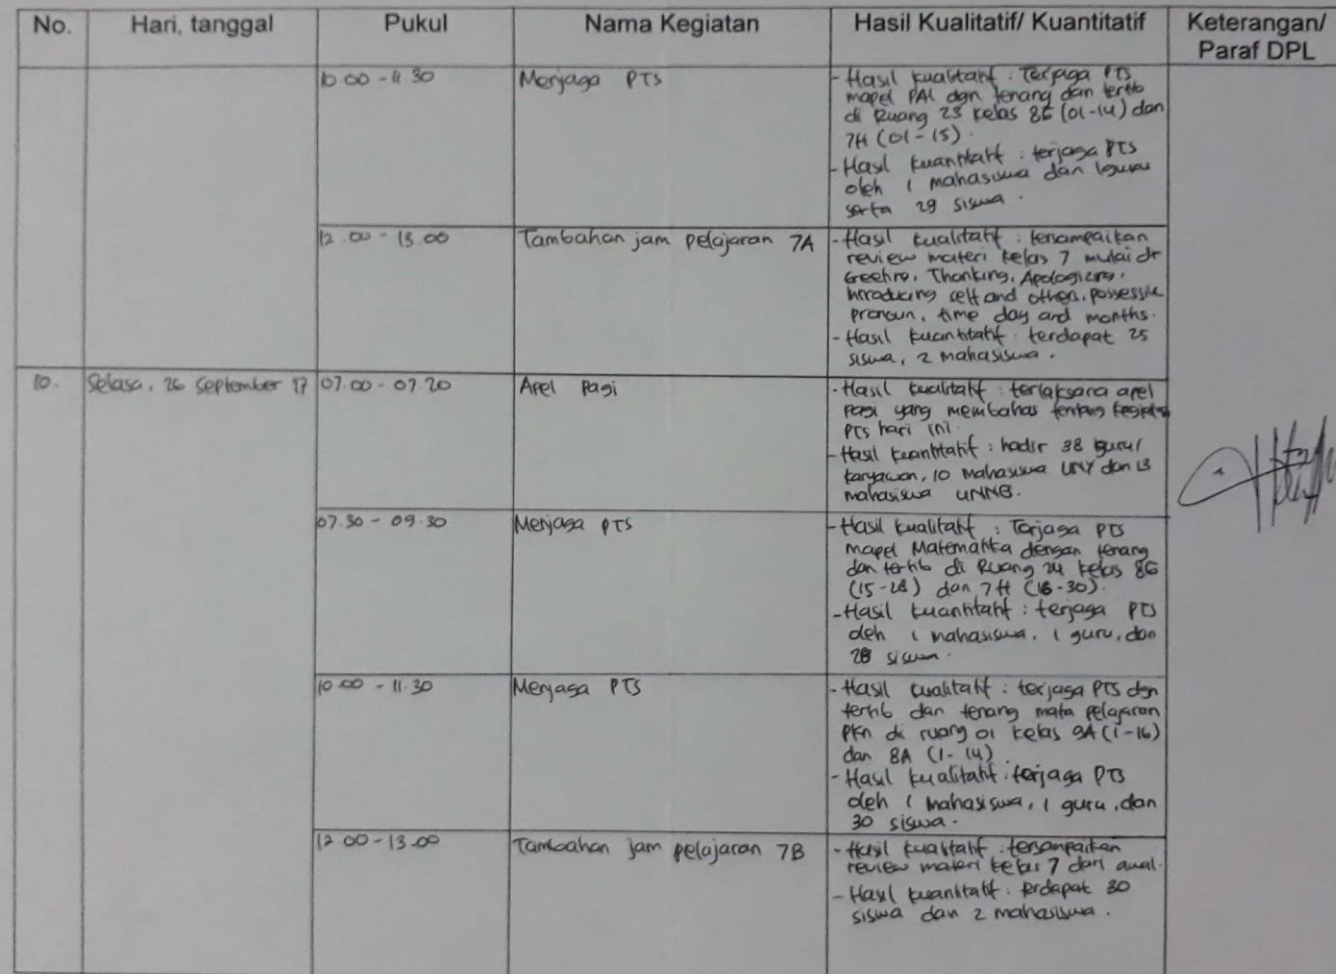 No. Hari, tanggal Pukul Nama Kegiatan Hasil Kualitatif/ Kuantitatif Keterangan/
Paraf DPL
10.00 - 11.30 Menjaga PTS - Hasil kualitatif : Terjaga PTS
mapel PAI dgn tenang dan tertib
di Ruang 23 kelas 8G (01-14) dan
7H (01-15).
- Hasil kuantitatif : terjaga PTS
oleh 1 mahasiswa dan 1 guru
serta 29 siswa.
12.00 - 13.00 Tambahan jam pelajaran 7A - Hasil kualitatif : tersampaikan
review materi kelas 7 mulai dr
Greeting, Thanking, Apologizing,
Introducing self and other, possessive
pronoun, time day and months.
- Hasil kuantitatif : terdapat 25
siswa, 2 mahasiswa.
10. Selasa, 26 September 17 07.00 - 07.20 Apel Pagi - Hasil kualitatif : terlaksana apel
pagi yang membahas tentang kegiatan
PTS hari ini.
- Hasil kuantitatif : hadir 38 guru/
karyawan, 10 mahasiswa UNY dan 13
mahasiswa UNNES.
07.30 - 09.30 Menjaga PTS - Hasil kualitatif : Terjaga PTS
mapel Matematika dengan tenang
dan tertib di Ruang 24 kelas 8G
(15-28) dan 7H (16-30).
- Hasil kuantitatif : terjaga PTS
oleh 1 mahasiswa, 1 guru, dan
28 siswa.
10.00 - 11.30 Menjaga PTS - Hasil kualitatif : terjaga PTS dgn
tertib dan tenang mata pelajaran
PKn di ruang 01 kelas 9A (1-16)
dan 8A (1-14)
- Hasil kualitatif : terjaga PTS
oleh 1 mahasiswa, 1 guru, dan
30 siswa.
12.00 - 13.00 Tambahan jam pelajaran 7B - Hasil kualitatif : tersampaikan
review materi kelas 7 dari awal.
- Hasil kuantitatif : terdapat 30
siswa dan 2 mahasiswa.